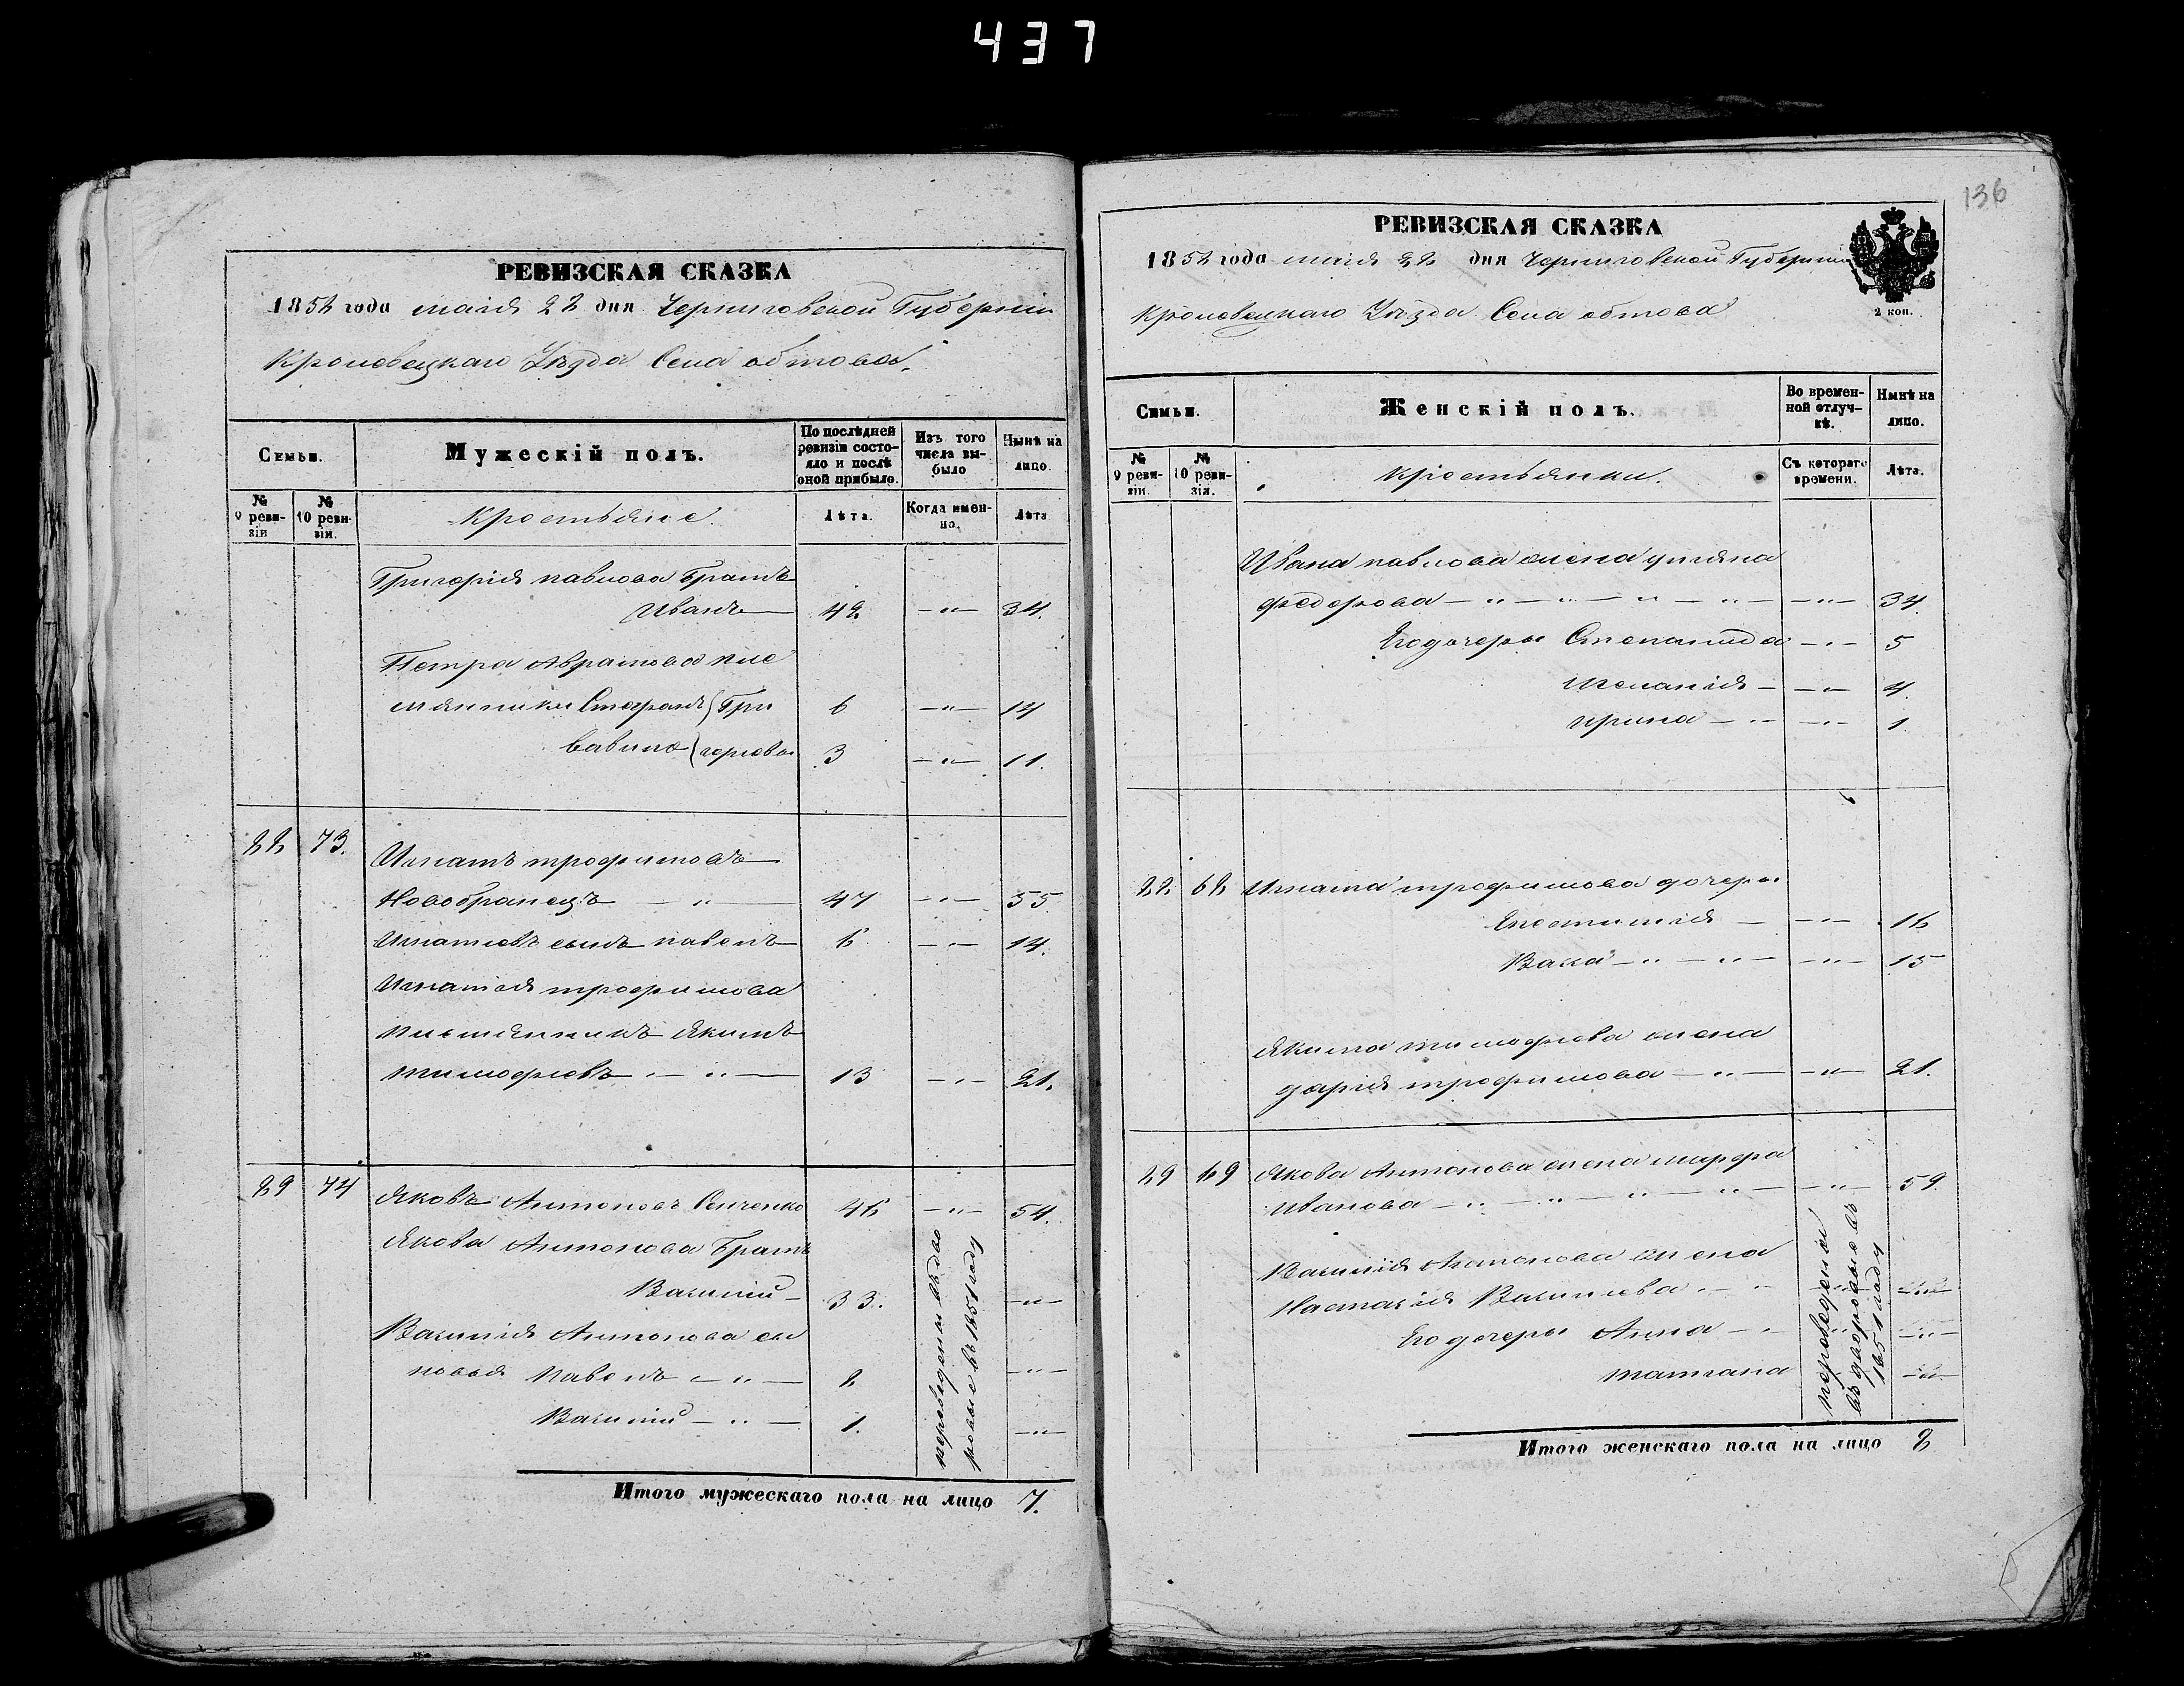 437
136
РЕВИЗСКАЯ СКАЗКА
1858 года маія 22 дня Черниговской Губерніи
Кролевецкаго Уѣзда Села обтова.
Семьи.
Мужескій полъ.
По послѣдней ревизіи состояло и послѣ оной прибыло.
Изъ того числа выбыло
Нынѣ на лицо.
№ 9 ревизіи
№ 10 ревизіи.
Крестьяне.
Лѣта.
Когда именно.
Лѣта
Григорія павлова Братъ
Иванъ 42 —"— 34.
Петра Аврамова пле
мянники Стефанъ { Гри 6 —"— 14
Савина { горіевы 3 —"— 11.
22 73. Игнатъ трофимовъ
Новобранецъ — " — 47 —"— 55.
Игнатіевъ сынъ павелъ 6 —"— 14.
Игнатія трофимова
племянникъ Якимъ
тимофіевъ — " — 13 —"— 21.
29 74 Яковъ Антоновъ Сенченко 46 —"— 54.
Якова Антонова Братъ
Василій — 33. —"—
Василія Антонова сы
новья Павелъ — " — 2 —"—
Василій — " — 1. —"—
переведены въ дво
ровые въ 1851 году
Итого мужескаго пола на лицо 7.
РЕВИЗСКАЯ СКАЗКА
1858 года маія 22 дня Черниговской Губерніи
2 коп.
Кролевецкаго Уѣзда Села обтова
Семьи.
Женскій полъ.
Во временной отлучкѣ.
Нынѣ на лицо.
№ 9 ревизіи.
№ 10 ревизіи.
Крестьянки.
Съ котораго времени.
Лѣта.
Ивана павлова жена уліяна
федорова — " — " — " — " — —"— 34.
Его дочери Степанида —"— 5
Меланія — —"— 4.
ирина — " — —"— 1.
22. 62 Игната трофимова дочери
—"— 16
—"— 15
Якима тимофіева жена
дарія трофимова — " — —"— 21.
29 69 Якова Антонова жена
Иванова — " — " — " — " — —"— 59.
Василія Антонова жена
Настасія Василіева — " — —"—
Его дочери Анна — " —"—
татіана —"—
переведены
въ дворовые въ
1851 году
Итого женскаго пола на лицо 8